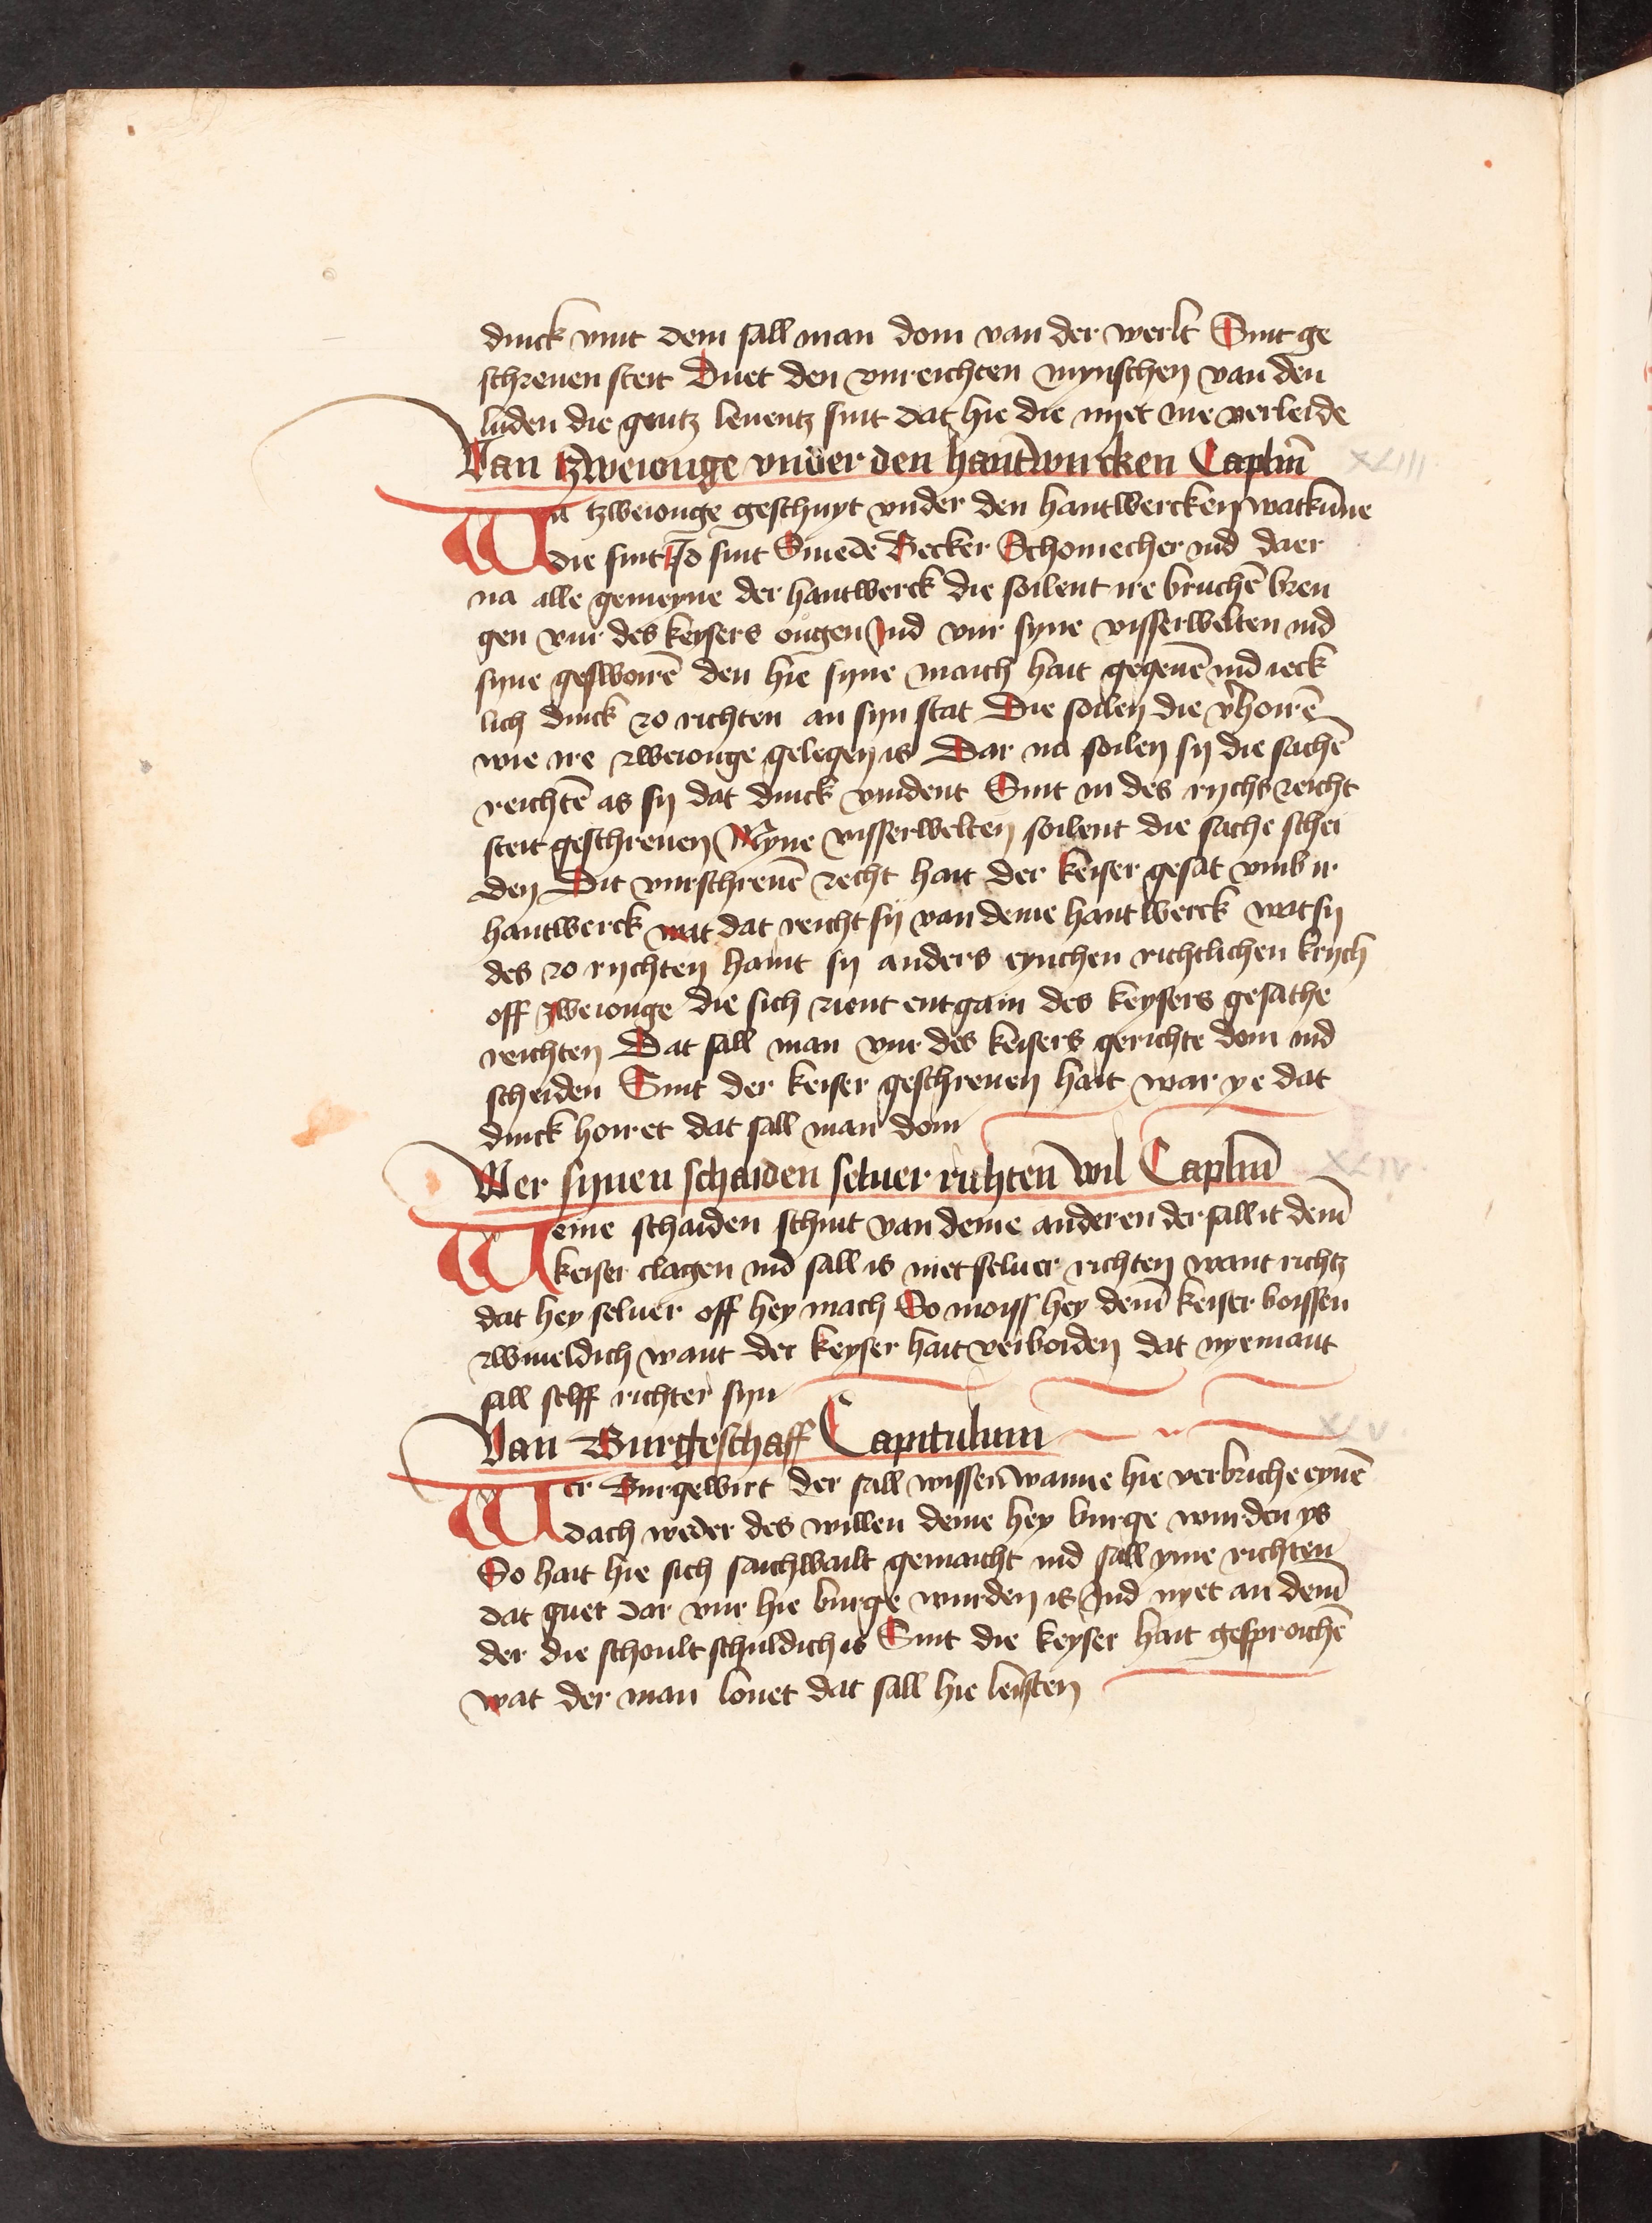 dinck vint dem sall man doin van der werlt Sint ge
schreuen steit Duet den vnreichten mynschen van den
luden die gentz leuentz sint dat hie die nyet me verleide
Van tzweionge vnder den hantwurcken Caplm̄ XLIII
Wa tzweionge geschuyt vnder den hantwercken wat kūne
die sint Id sint Smede Becker Schomecher ind daer
na alle gemeyne der hantwerck die soilent ire bruchē bren
gen vur des keysers ougen Ind vur syne visserwelten ind
syne gesworē den hie syne maich hait gegeuē ind ieck
lich dinck zo richten an syn stat Die soilen die v̄hoirē
wie ire zweionge gelegen is Dar na soilen sy die sachē
reichtē as sy dat dinck vindent Sint in des rychs reicht
steit geschreuen Myne visserwelten soilent die sache schei
den Dit vurschreuē recht hait der keiser gesat vmb ir
hantwerck wat dat reicht sy van deme hantwerck wat sy
des zo rychten haint sy anders eynchen richtlichen krych
off zweionge die sich zient entgain des keysers gesathe
reichten Dat sall man vur des keisers gerichte doin ind
scheiden Sint der keiser geschreuen hait war ye dat
dinck hoiret dat sall man doin
Wer synen schaiden seluer richten wil Caplm̄ XLIV.
Weme schaiden schiut van deme anderen der sall it dem̄
keiser clagen ind sall is niet seluer richten want richtz
dat hey seluer off hey mach So moiss hey dem̄ keiser boissen
zwiueldich want der keyser hait verboiden dat nyemant
sall selff richter syn
Van Burgeschaff Capitulum XLV.
Wer Burge wirt der sall wissen wanne hie verbriche eynē
dach weder des willen deme hey burge wurden ys
So hait hie sich saichwailt gemaicht ind sall yme richten
dat guet dar vur hie burge wurden is Ind nyet an dem̄
der die schoult schuldich is Sint die keyser hait gesproichē
wat der man louet dat sall hie leisten